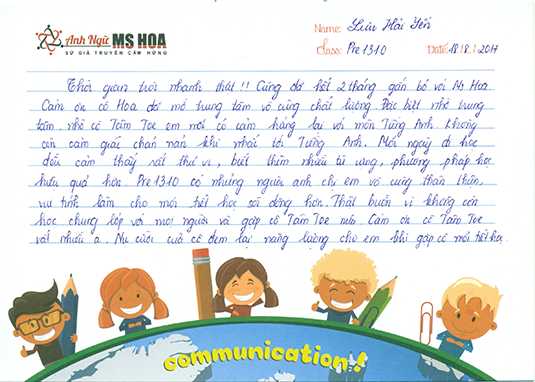 Anh Ngữ MS HOA
SỨ GIẢ TRUYỀN CẢM HỨNG
Name: Lưu Hải Yến
Class: Pre 1310
Date: 18/8/2017
Thời gian trôi nhanh thật!! Cũng đã hết 2 tháng gắn bó với Ms Hoa
Cảm ơn cô Hoa đã mở trung tâm vô cùng chất lượng. Đặc biệt nhờ trung
tâm, nhờ cô Tâm Toe em mới có cảm hứng lại với môn Tiếng Anh không
còn cảm giác chán nản khi nhắc tới Tiếng Anh. Mỗi ngày đi học
đều cảm thấy rất thú vị, biết thêm nhiều từ vựng, phương pháp học
hiệu quả hơn. Pre 1310 có những người anh chị em vô cùng thân thiện,
vui tính làm cho mỗi tiết học sôi động hơn. Thật buồn vì không còn
học chung lớp với mọi người và gặp cô Tâm Toe nữa. Cảm ơn cô Tâm Toe
rất nhiều ạ. Nụ cười của cô đem lại năng lượng cho em khi gặp cô mỗi tiết học
communication!